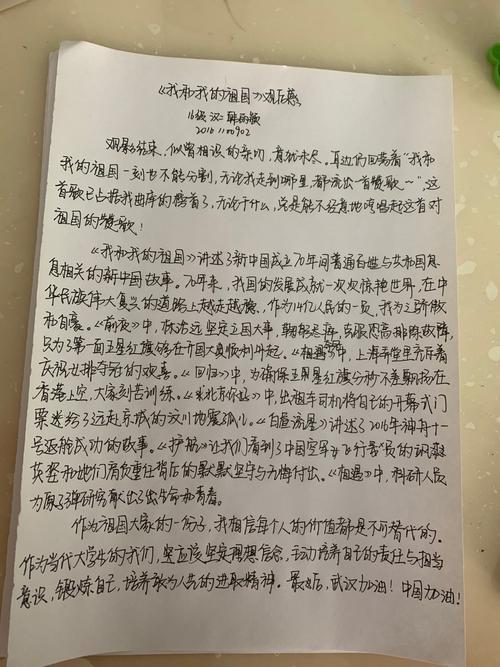 《我和我的祖国》观后感
16级 汉二 韩丽敏
20161100902
观影结束，似曾相识的亲切，意犹未尽。耳边仍回荡着“我和
我的祖国一刻也不能分割，无论我走到哪里，都流出一首赞歌~”，这
首歌已占据我曲库的榜首了，无论干什么，总是能不经意地哼唱起这首对
祖国的赞歌！
《我和我的祖国》讲述了新中国成立70年间普通百姓与共和国息
息相关的新中国故事。70年来，我国的发展成就一次次惊艳世界，在中
华民族伟大复兴的道路上越走越稳，作为14亿人民的一员，我为之骄傲
和自豪。《前夜》中，林治远坚定立国大事，克服恐高排除故障，
只为了第一面五星红旗能够在开国大典顺利升起。《夺冠》中，上海弄堂里齐齐
庆祝女排夺冠的欢喜。《回归》中，为确保五星红旗分秒不差飘扬在
香港上空，大家刻苦训练。《北京你好》中，出租车司机将自己的开幕式门
票送给了远赴京城的汶川地震孤儿。《白昼流星》讲述了2016年神舟十一
号返航成功的故事。《护航》让我们看到了中国空军女飞行员的飒爽
英姿和她们肩负重任背后的默默坚守与无悔付出。《相遇》中，科研人员
为原子弹研究献出了生命和青春。
作为祖国大家的一份子，我相信每个人的价值都是不可替代的。
作为当代大学生的我们，更应该坚定理想信念，主动培养自己的责任与担当
意识，锻炼自己，培养敢为人先的进取精神。最后，武汉加油！中国加油！